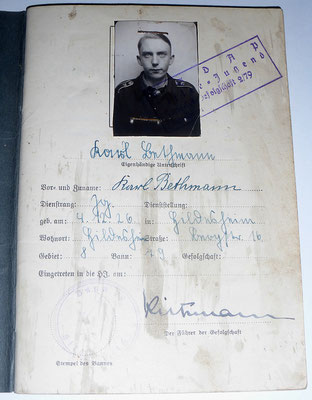 D A P
Jugend
Gefolgschaft 279
Karl Bethmann
Eigenhändige Unterschrift
Vor- und Zuname: Karl Bethmann
Dienstrang: Jg. Dienststellung:
geb. am: 4.12.26. in: Hildesheim
Wohnort: Hildesheim Straße: 16
Gebiet: 8 Bann: 79 Gefolgschaft:
Eingetreten in die HJ. am:
Der Führer der Gefolgschaft
Stempel des Bannes